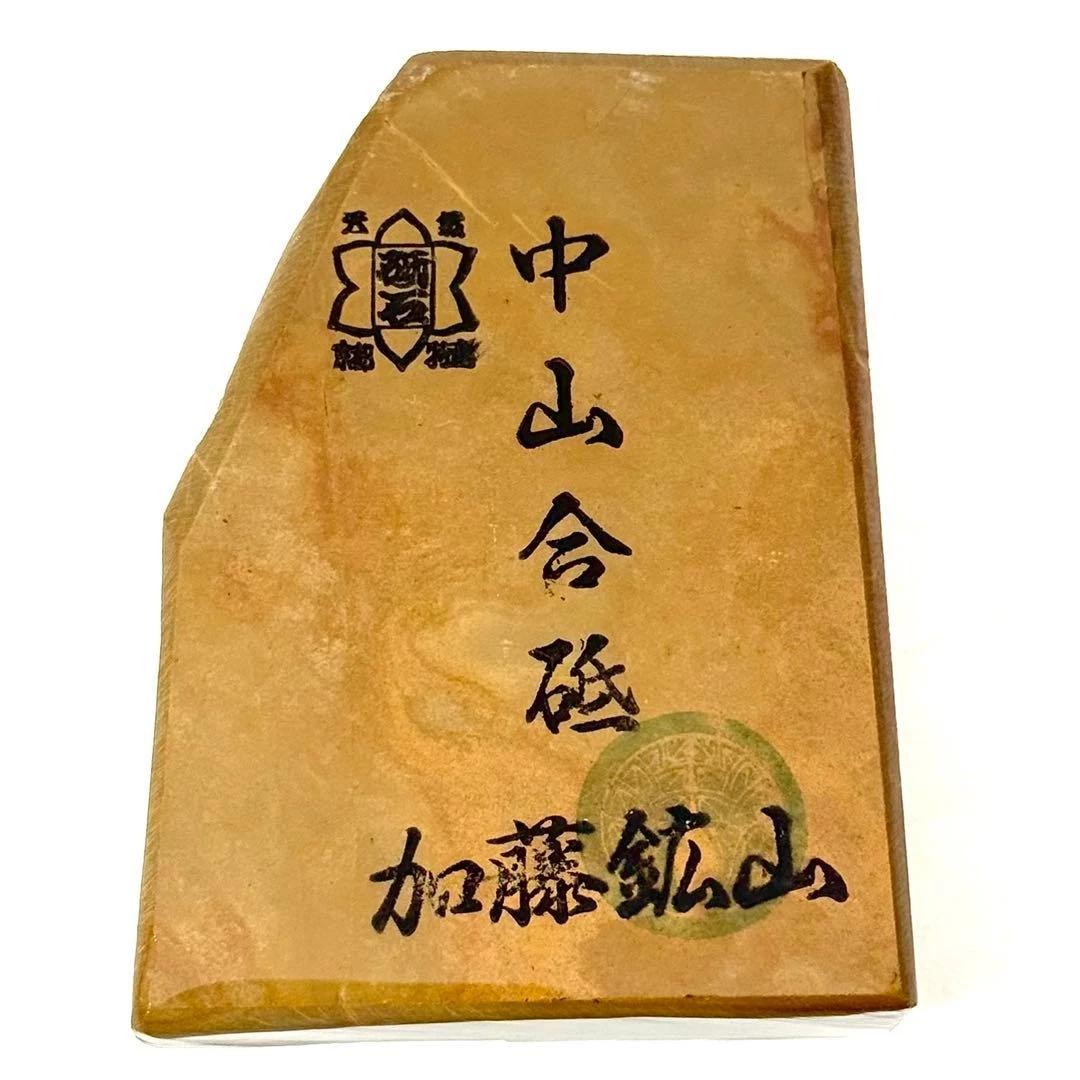 中山合砥
天然
砥石
京都
加藤鉱山